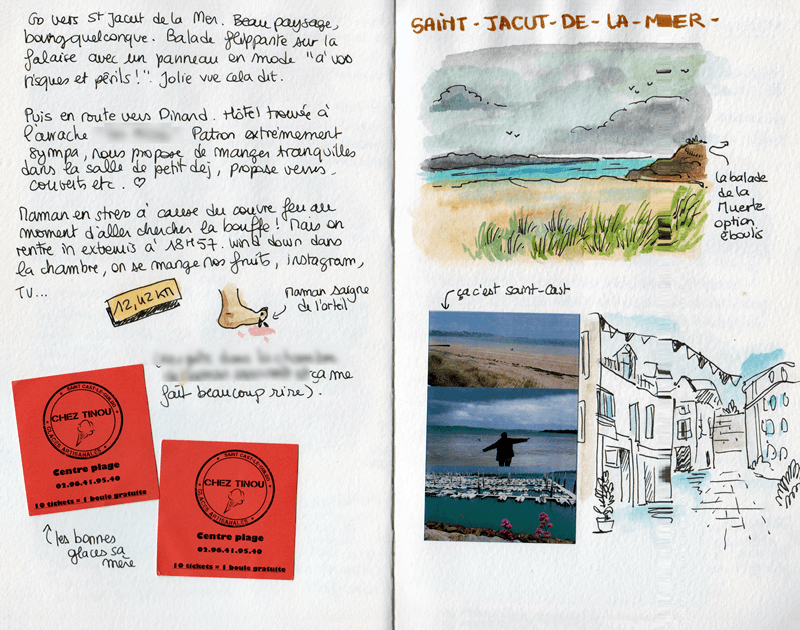 Go vers St Jacut de la Mer. Beau paysage,
bourg quelconque. Balade flippante sur la
falaise avec un panneau en mode "à vos
risques et périls!". Jolie vue cela dit.
Puis en route vers Dinard. Hôtel trouvée à
l'arrache Patron extrêmement
sympa, nous propose de manges tranquilles
dans la salle de petit dej, propose verres.
couverts etc. ♡
Maman en stress à cause du couvre feu au
moment d'aller chercher la bouffe! Mais on
rentre in extremis à 18H57. Wind down dans
la chambre, on se mange nos fruits, instagram,
TV...
12,42 km
Maman saigne
de l'orteil
ça me
fait beaucoup rire).
SAINT CAST-LE-GUILDO
CHEZ TINOU
GLACES ARTISANALES
Centre plage
02.96.41.05.40
10 tickets = 1 boule gratuite
SAINT CAST-LE-GUILDO
CHEZ TINOU
GLACES ARTISANALES
Centre plage
02.96.41.05.40
10 tickets = 1 boule gratuite
les bonnes
glaces sa
mère
SAINT-JACUT-DE-LA-MER-
la balade
de la
Muerte
option
éboulis
ça c'est Saint-Cast